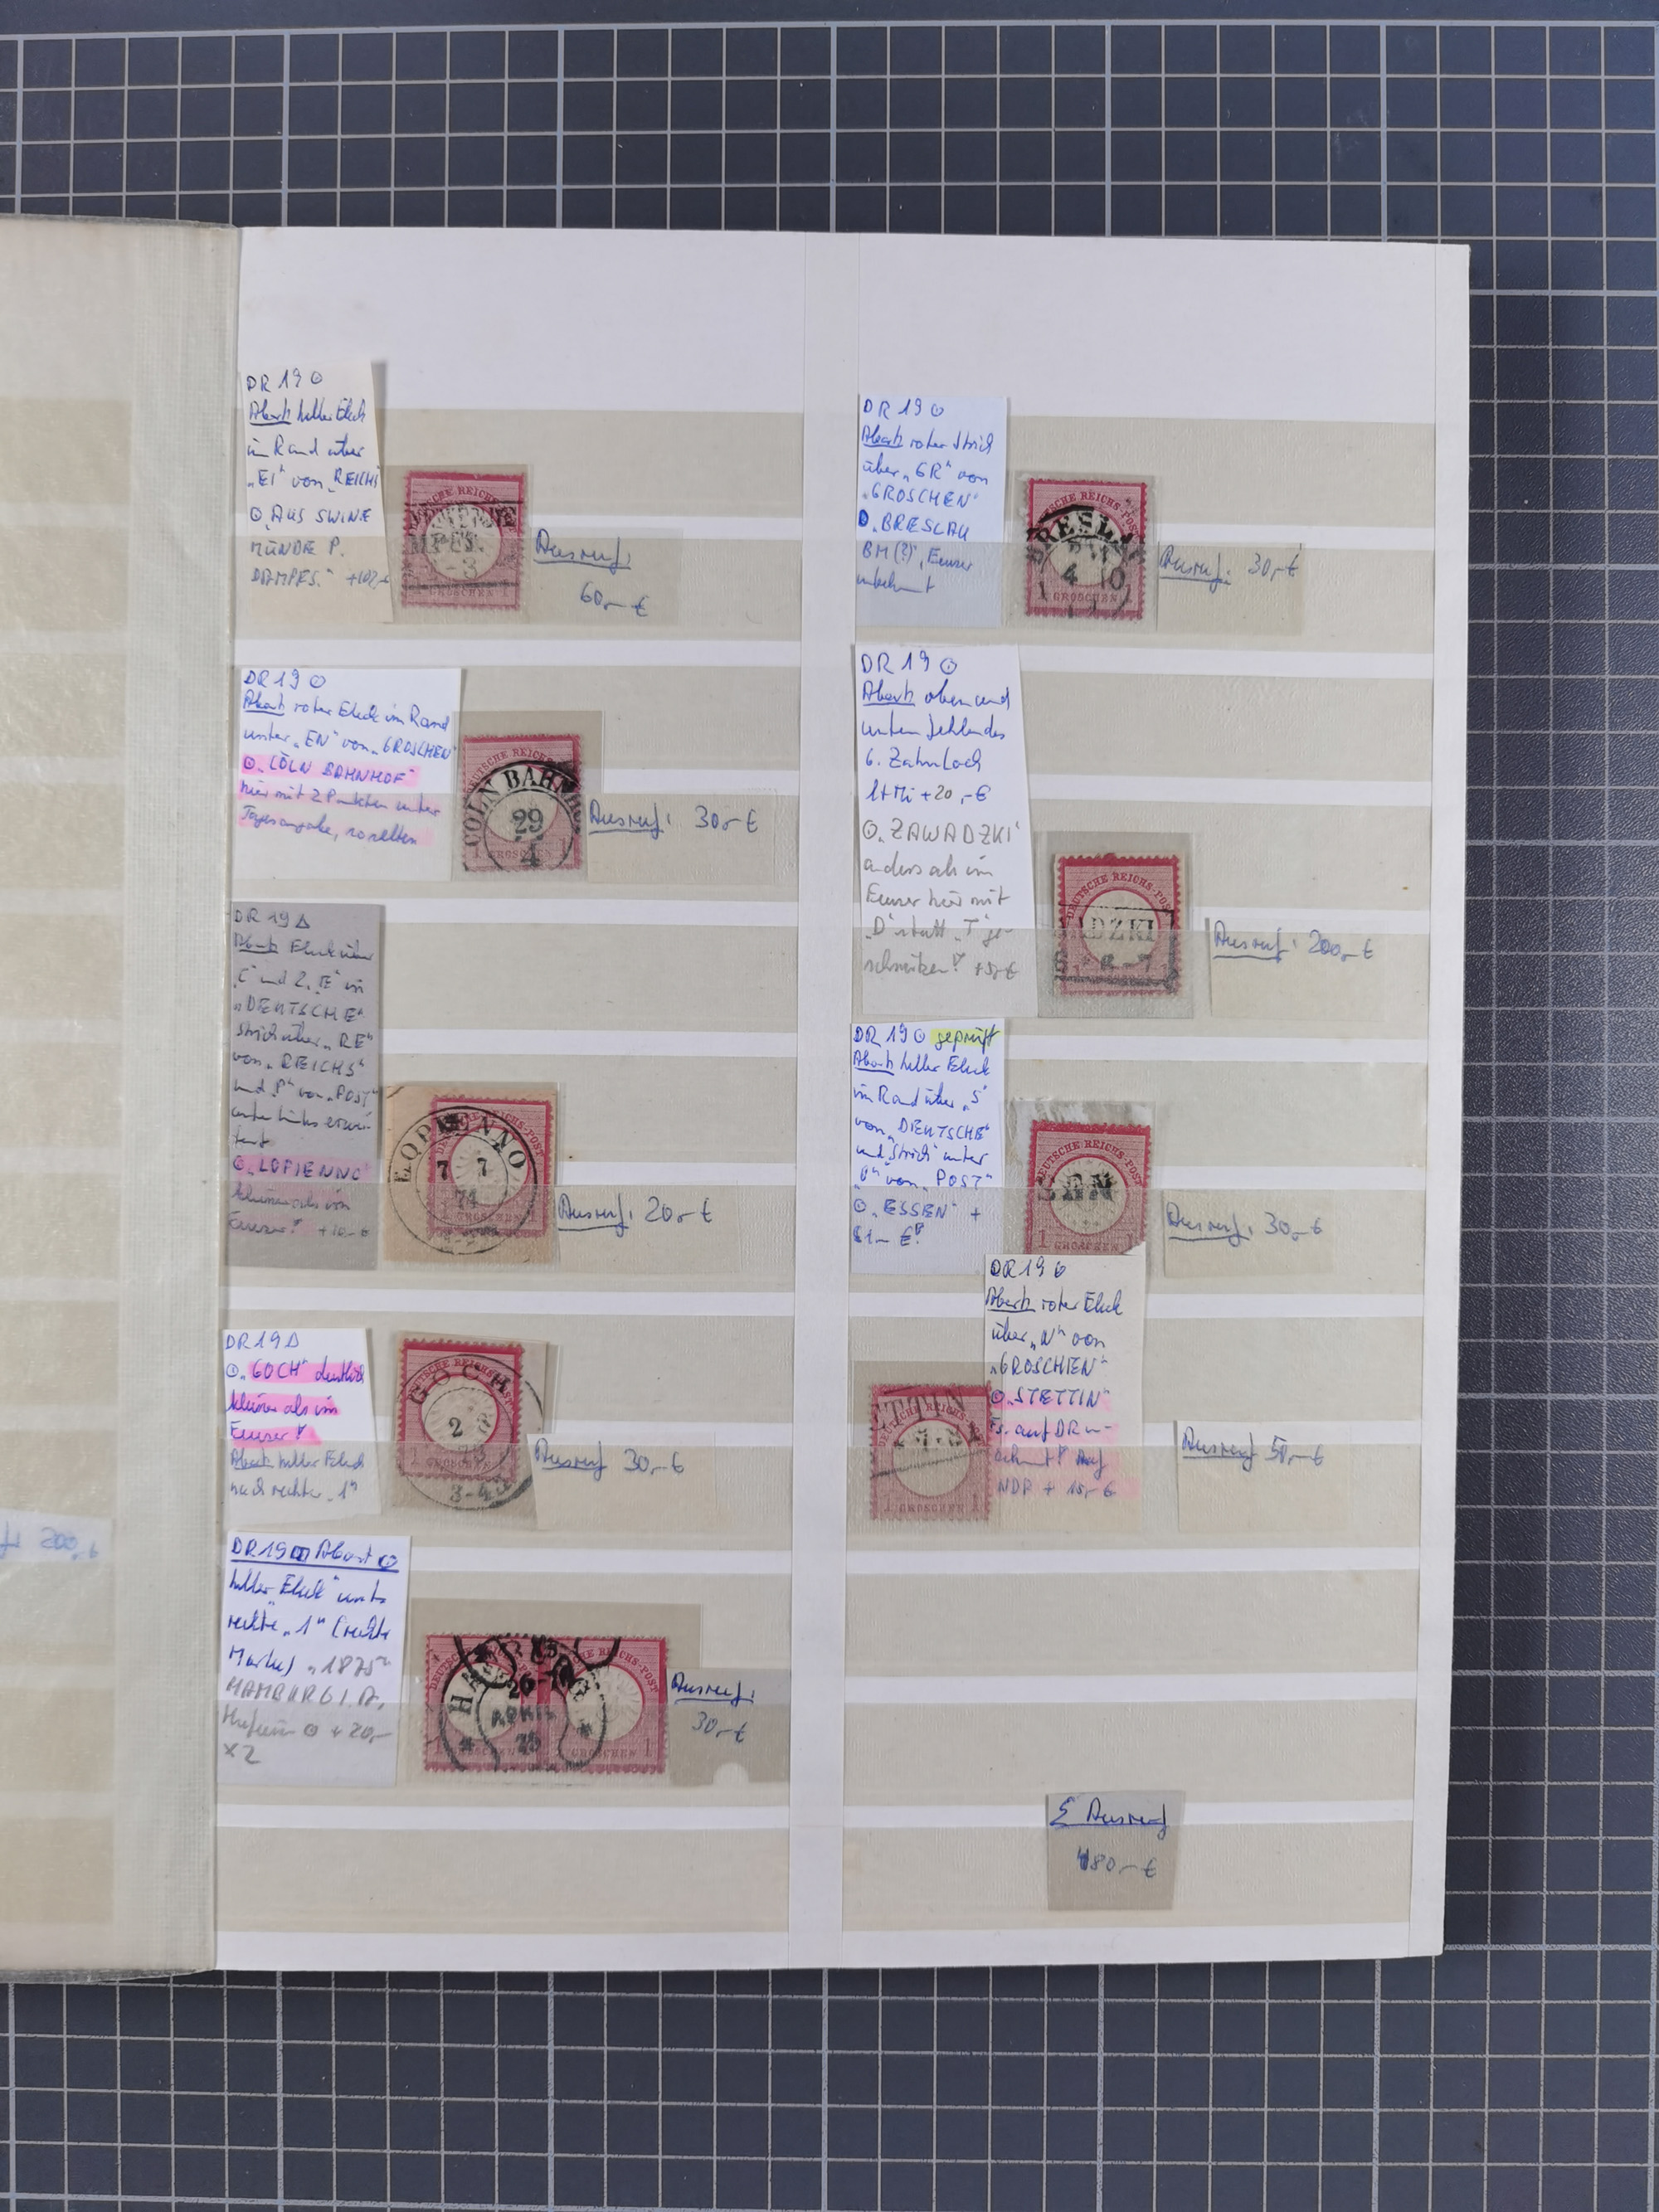 DR 19 ⊙
Abart heller Fleck
im Rand über
„EI" von „REICHS
⊙ „AUS SWINE
MÜNDE P.
DAMPFS."
DEUTSCHE REICHS-POST
GROSCHEN
Ausruf:
60,- €
DR 19 ⊙
Abart roter Fleck im Rand
unter „EN" von „GROSCHEN"
⊙ „CÖLN BAHNHOF"
hier mit 2 Punkten unter
Tagesangabe, so selten
DEUTSCHE REICHS
CÖLN BAHNHOF
29
4
1 GROSCHEN
Ausruf: 30,- €
DR 19 △
Abart Fleck über
„C" und 2. „E" in
„DEUTSCHE"
Strich über „RE"
von „REICHS"
und „P" von „POST"
unten links
⊙ „LOPIENNO"
kleiner als im
Feuser! +10,- €
REICHS-POST
LOPIENNO
7 7
74
Ausruf: 20,- €
DR 19 △
⊙ „GOCH" deutlich
kleiner als im
Feuser!
Abart heller Fleck
nach rechte „1"
DEUTSCHE REICHS-POST
GOCH
2
GROSCHEN
3-4
Ausruf 30,- €
DR 19 Abart ⊙
heller „Fleck" unt.
rechte „1" (rechte
Marke) „1875"
HAMBURG I.A.
Hufeisen ⊙ + 20,-
x2
HAMBURG
REICHS-POST
APRIL
75
GROSCHEN 1
Ausruf:
30,- €
DR 19 ⊙
Abart roter Strich
über „GR" von
„GROSCHEN"
⊙ „BRESLAU
BM (?)", Feuser
unbekannt
DEUTSCHE REICHS-POST
BRESLAU
4 10
1 GROSCHEN
Ausruf: 30,- €
DR 19 ⊙
Abart oben und
unten fehlendes
6. Zahnloch
lt Mi +20,- €
⊙ „ZAWADZKI"
anders als im
Feuser hier mit
„D" statt „T" ge-
schrieben!
DEUTSCHE REICHS-POST
ADZKI
Ausruf: 200,- €
DR 19 ⊙ geprüft
Abart heller Fleck
im Rand über „S"
von „DEUTSCHE"
und Strich unter
„O" von „POST"
⊙ „ESSEN" +
DEUTSCHE REICHS-POST
1 GROSCHEN 1
Ausruf: 30,- €
DR 19 ⊙
Abart roter Fleck
über „N" von
„GROSCHEN"
⊙ „STETTIN"
Fs. auf DR un-
bekannt! Auf
NDP + 15,- €
ETTIN
DEUTSCHE REICHS-POST
1 GROSCHEN 1
Ausruf 50,- €
Σ Ausruf
480,- €
200,- €